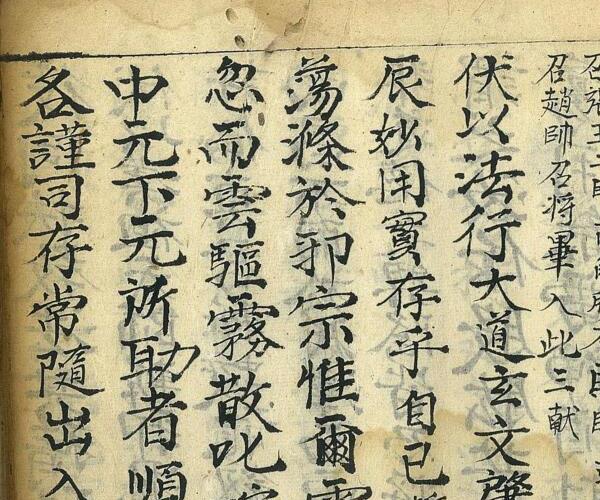 召張王二帥
召趙帥召将畢入此三献
伏以法行大道玄文
辰妙用實存乎自己
蕩滌於邪宗惟爾
忽而雲驅霧散叱
中元下元所助者順
各謹司存常隨出入